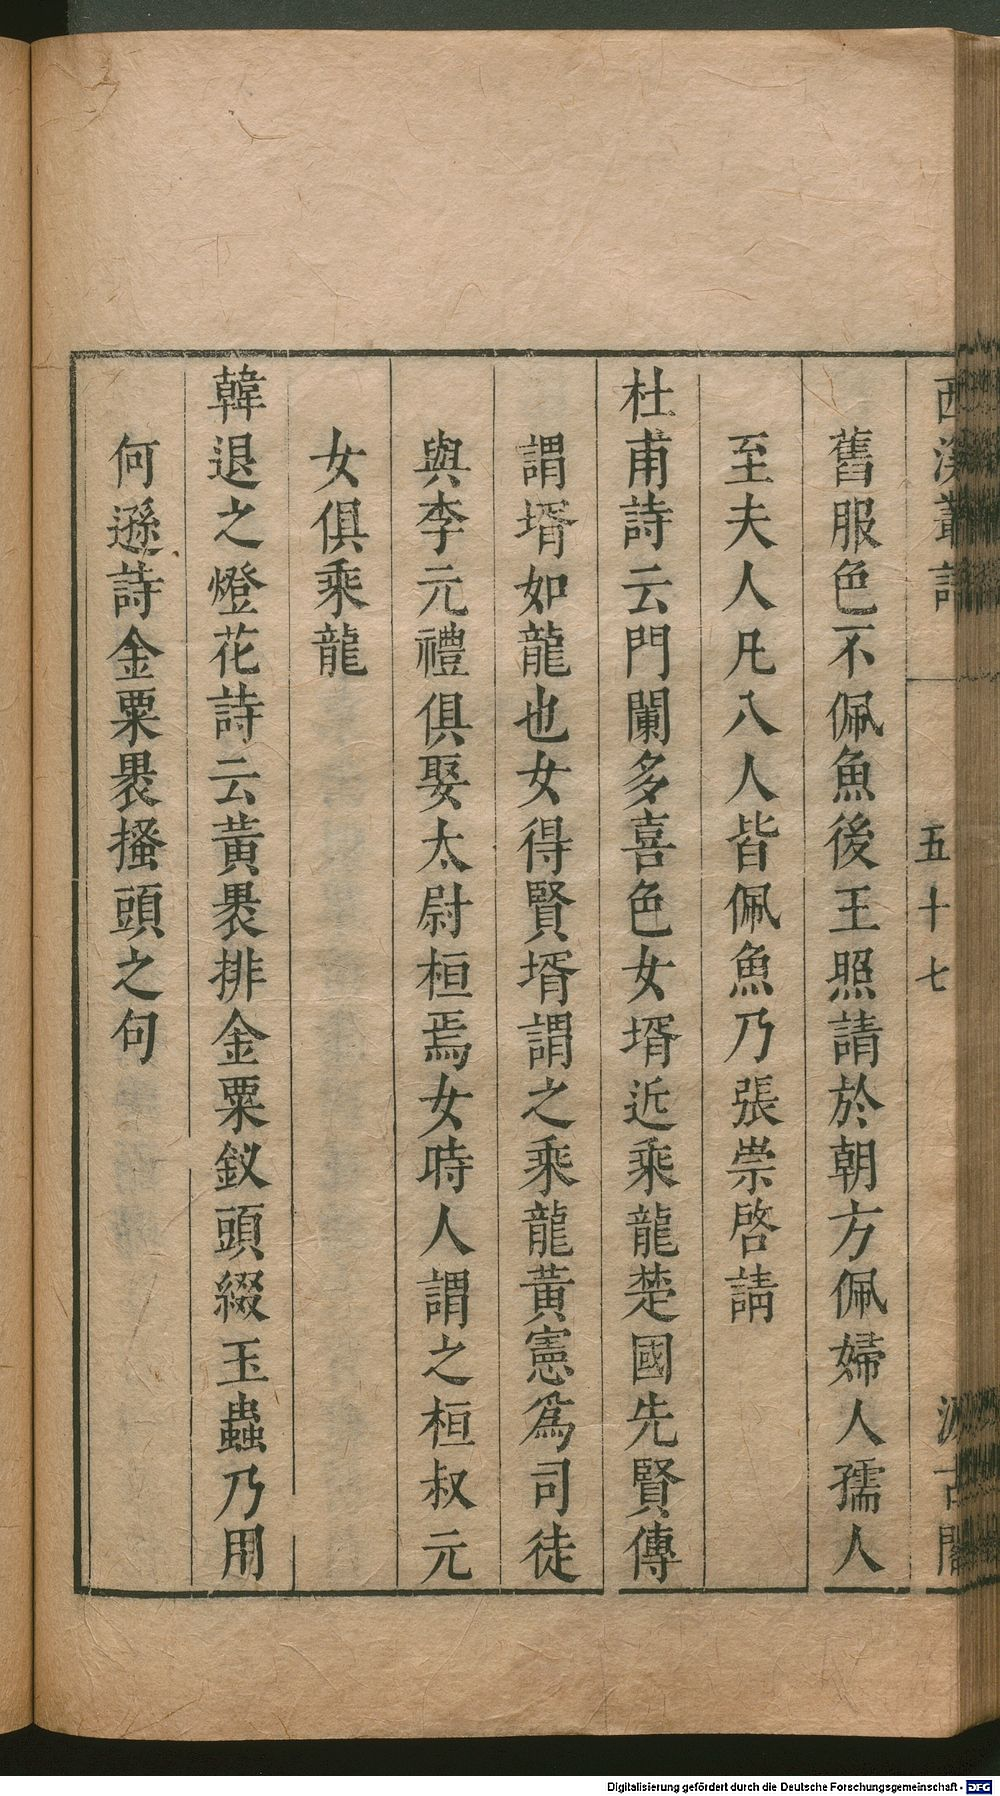 西溪叢語 五十七 汲古閣
舊服色不佩魚後王照請於朝方佩婦人孺人
至夫人凡八人皆佩魚乃張崇啓請
杜甫詩云門闌多喜色女壻近乘龍楚國先賢傳
謂壻如龍也女得賢壻謂之乘龍黃憲爲司徒
與李元禮俱娶太尉桓焉女時人謂之桓叔元
女俱乘龍
韓退之燈花詩云黃褁排金粟釵頭綴玉蟲乃用
何遜詩金粟褁搔頭之句
Digitalisierung gefördert durch die Deutsche Forschungsgemeinschaft - DFG